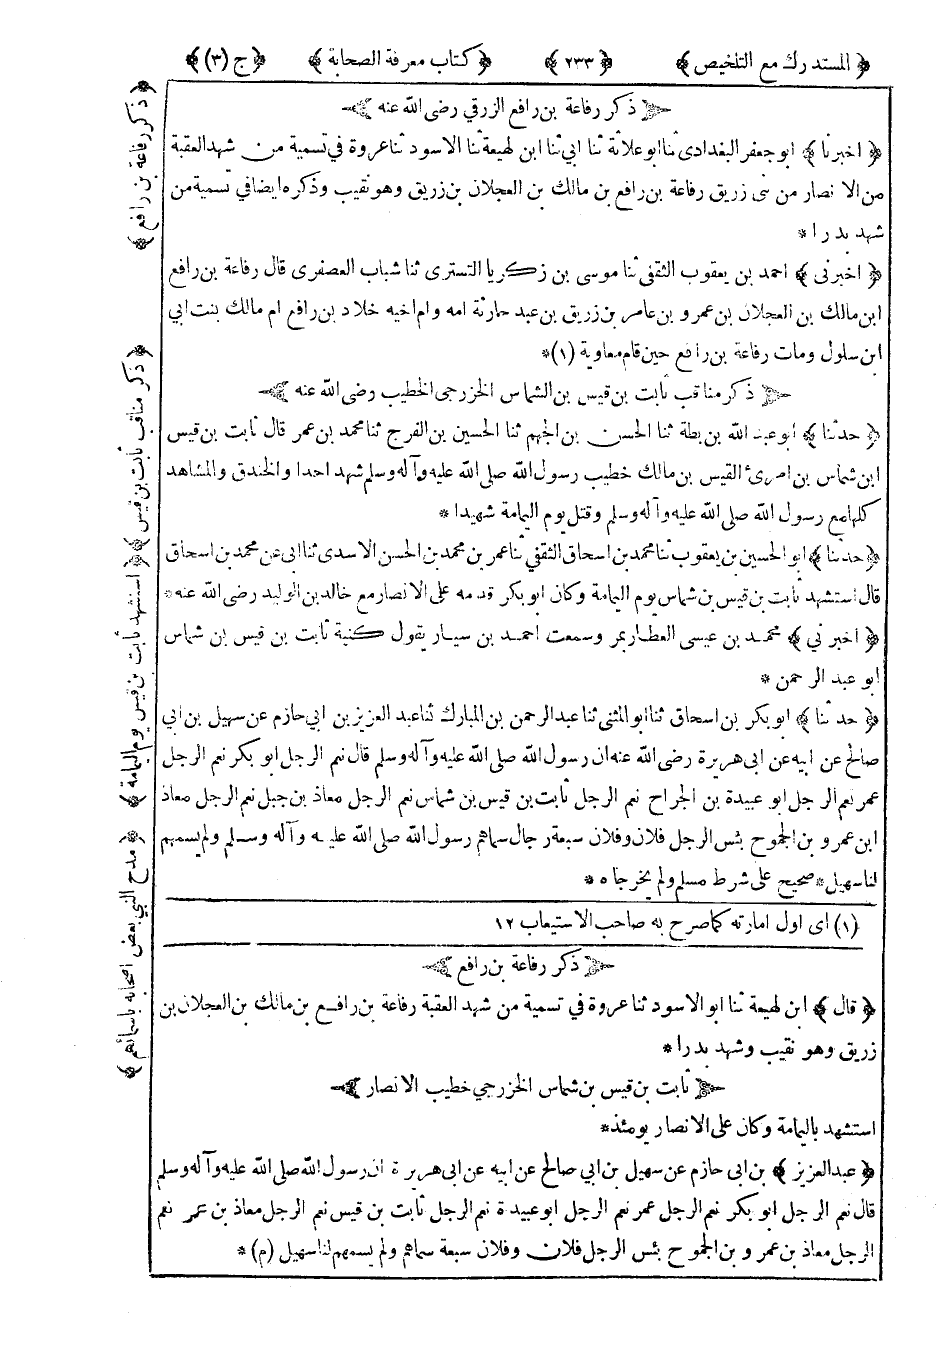 ﴿ المستدرك مع التلخيص ﴾ ﴿ ٢٣٣ ﴾ ﴿ كتاب معرفة الصحابة ﴾ ﴿ ج (٣) ﴾
ذكر رفاعة بن رافع الزرقي رضى الله عنه
﴿ اخبرنا ﴾ ابو جعفر البغدادى ثنا ابو علاثة ثنا ابي ثنا ابن لهيعة ثنا الاسود ثنا عروة في تسمية من شهد العقبة
من الانصار من بنى زريق رفاعة بن رافع بن مالك بن العجلان بن زريق وهو نقيب وذكره ايضا في تسمية من
شهد بدرا *
﴿ اخبرنى ﴾ احمد بن يعقوب الثقفي ثنا موسى بن زكريا التسترى ثنا شباب العصفرى قال رفاعة بن رافع
ابن مالك بن العجلان بن عمرو بن عامر بن زريق بن عبد حارثة امه وام اخيه خلاد بن رافع ام مالك بنت ابي
ابن سلول ومات رفاعة بن رافع حين قام معاوية (١) *
ذكر مناقب ثابت بن قيس بن الشماس الخزرجي الخطيب رضى الله عنه
﴿ حدثنا ﴾ ابو عبد الله بن بطة ثنا الحسن بن الجهم ثنا الحسين بن الفرج ثنا محمد بن عمر قال ثابت بن قيس
ابن شماس بن امرئ القيس بن مالك خطيب رسول الله صلى الله عليه وآله وسلم شهد احدا والخندق والمشاهد
كلها مع رسول الله صلى الله عليه وآله وسلم وقتل يوم اليمامة شهيدا *
﴿ حدثنا ﴾ ابو الحسين بن يعقوب ثنا محمد بن اسحاق الثقفي ثنا عمر بن محمد بن الحسن الاسدى ثنا ابى عن محمد بن اسحاق
قال استشهد ثابت بن قيس بن شماس يوم اليمامة وكان ابو بكر قدمه على الانصار مع خالد بن الوليد رضى الله عنه *
﴿ اخبرني ﴾ محمد بن عيسى العطار بمر وسمعت احمد بن سيار يقول كنية ثابت بن قيس بن شماس
ابو عبد الرحمن *
﴿ حدثنا ﴾ ابو بكر بن اسحاق ثنا ابو المثنى ثنا عبد الرحمن بن المبارك ثنا عبد العزيز بن ابي حازم عن سهيل بن ابي
صالح عن ابيه عن ابى هريرة رضى الله عنه ان رسول الله صلى الله عليه وآله وسلم قال نعم الرجل ابو بكر نعم الرجل
عمر نعم الرجل ابو عبيدة بن الجراح نعم الرجل ثابت بن قيس بن شماس نعم الرجل معاذ بن جبل نعم الرجل معاذ
ابن عمرو بن الجموح بئس الرجل فلان وفلان سبعة رجال سماهم رسول الله صلى الله عليه وآله وسلم ولم يسمهم
لنا سهيل * صحيح على شرط مسلم ولم يخرجاه *
(١) اى اول امارته كما صرح به صاحب الاستيعاب ١٢
ذكر رفاعة بن رافع
﴿ قال ﴾ ابن لهيعة ثنا ابو الاسود ثنا عروة في تسمية من شهد العقبة رفاعة بن رافع بن مالك بن العجلان بن
زريق وهو نقيب وشهد بدرا *
ثابت بن قيس بن شماس الخزرجي خطيب الانصار
استشهد باليمامة وكان على الانصار يومئذ *
﴿ عبد العزيز ﴾ بن ابى حازم عن سهيل بن ابي صالح عن ابيه عن ابى هريرة ان رسول الله صلى الله عليه وآله وسلم
قال نعم الرجل ابو بكر نعم الرجل عمر نعم الرجل ابو عبيدة نعم الرجل ثابت بن قيس نعم الرجل معاذ بن عمر نعم
الرجل معاذ بن عمرو بن الجموح بئس الرجل فلان وفلان سبعة سماهم ولم يسمهم لنا سهيل (م) *
﴿ ذكر رفاعة بن رافع ﴾
﴿ ذكر مناقب ثابت بن قيس ﴾
﴿ استشهد ثابت بن قيس يوم اليمامة ﴾
﴿ مدح النبي بعض اصحابه باسمائهم ﴾